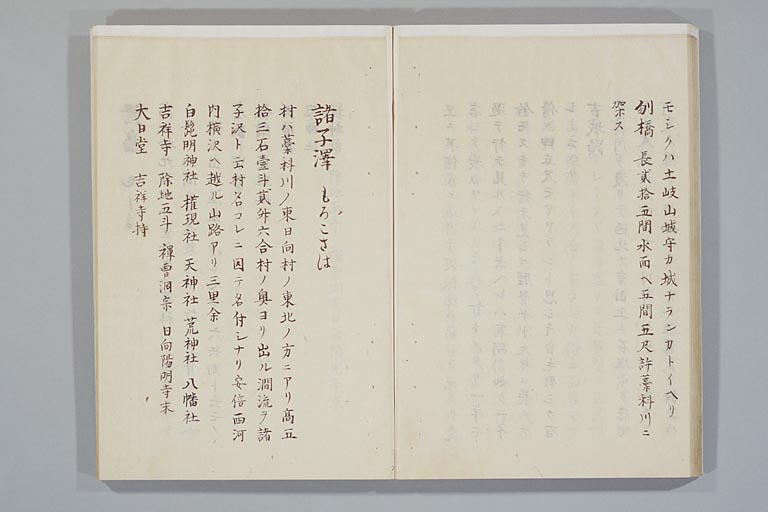 モシクハ土岐山城守カ城ナランカトイヘリ
刎橋 長貳拾五間水面ヘ五間五尺許藁科川ニ
架ス
諸子澤 もろこさは
村ハ藁科川ノ東日向村ノ東北ノ方ニアリ高五
拾三石壹斗貳舛六合村ノ奥ヨリ出ル澗流ヲ諸
子沢ト云村名コレニ因テ名付シナリ安倍西河
内横沢ヘ越ル山路アリ三里余
白髭明神社 権現社 天神社 荒神社 八幡社
吉祥寺 除地五斗 禅曹洞宗日向陽明寺末
大日堂 吉祥寺持